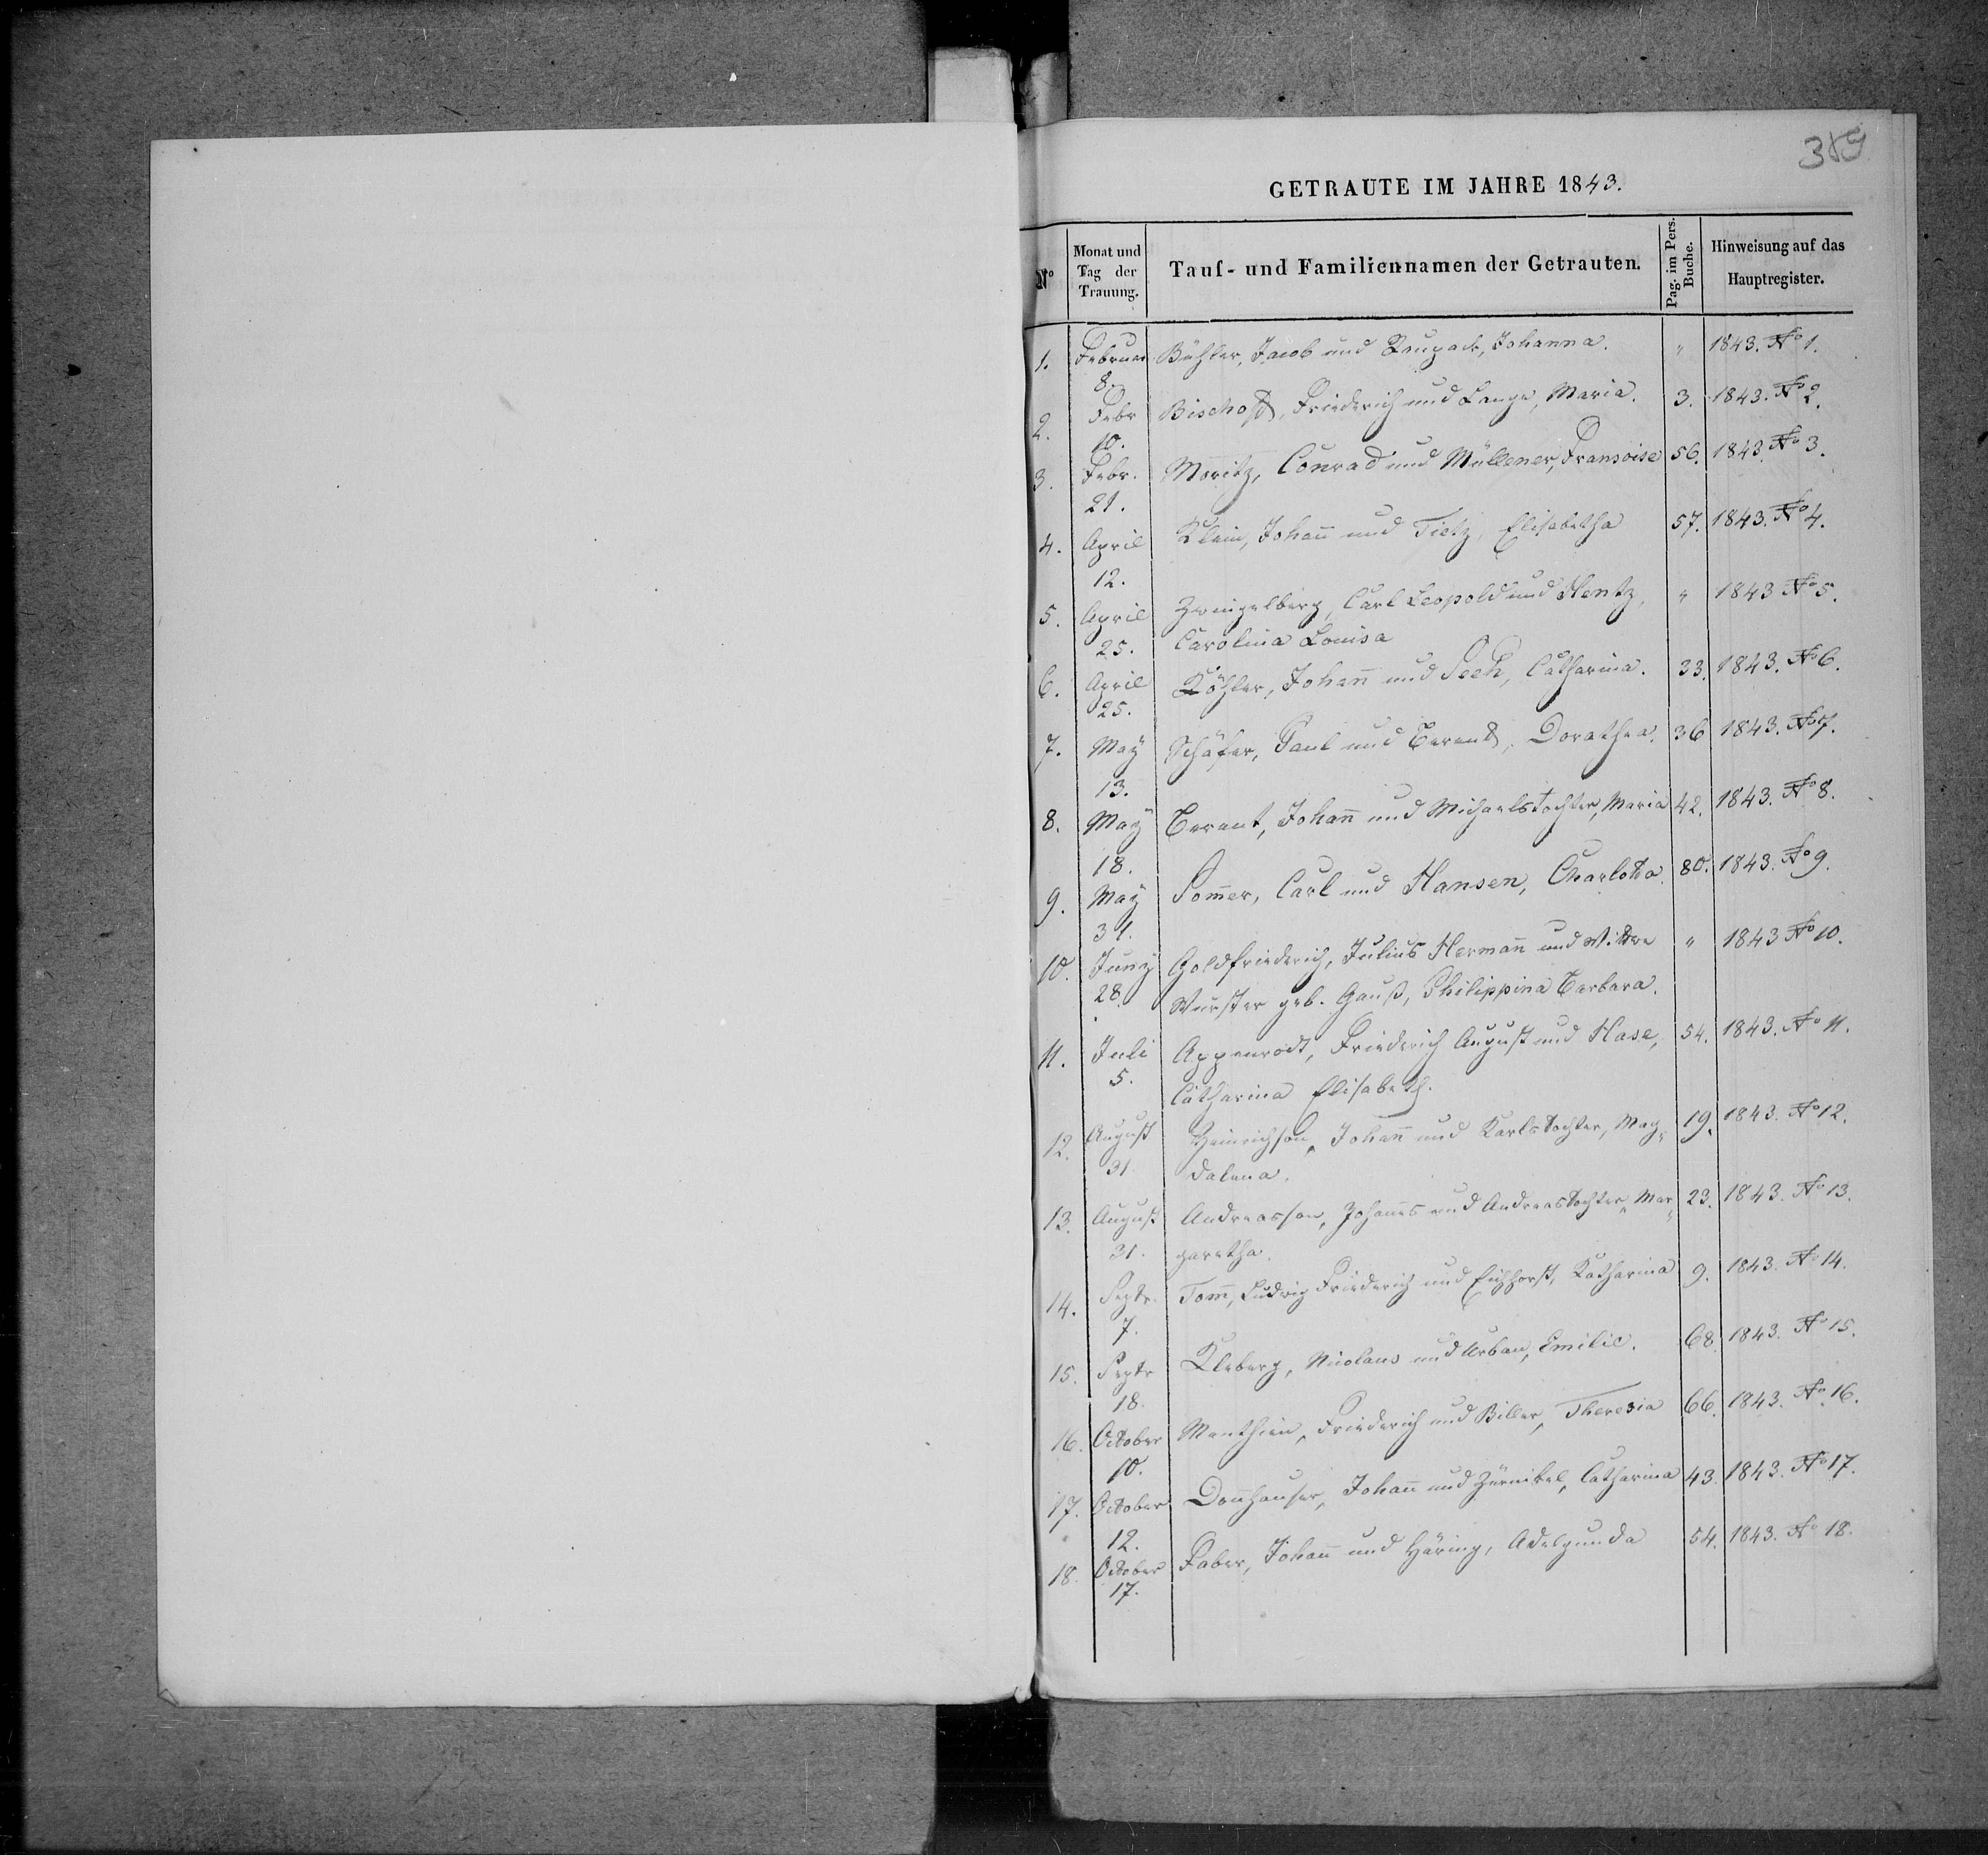 389
GETRAUTE IM JAHRE 1843.
N° | Monat und Tag der Trauung. | Tauf- und Familiennamen der Getrauten. | Pag. im Pers. Buche. | Hinweisung auf das Hauptregister.
1. Februar Bühler, Jacob und Johanna. " 1843. No 1.
8.
2. Febr Bischoff, Friederich und Lange, Maria. 3. 1843. No 2.
10.
3. Febr. Moritz, Conrad und Müllener, Fransoise 56. 1843. No 3.
21.
4. April Klein, Johann und Tietz, Elisabetha 57. 1843. No 4.
12.
5. April Zwingelberg, Carl Leopold und Hentz, " 1843 No 5.
25. Carolina Louisa
6. April Köhler, Johann und Seeh, Catharina. 33. 1843. No 6.
25.
7. May Schäfer, Paul und Berent, Dorathea. 36 1843. No 7.
13.
8. May Berent, Johann und Michaelstochter, Maria 42. 1843. No 8.
18.
9. May Sommer, Carl und Hansen, Charlotta. 80. 1843. No 9.
31.
10. Juny Goldfriederich, Julius Hermann und Wittwe " 1843 No 10.
28. Wurster geb. Gauß, Philippina Barbara.
11. Juli Appenrodt, Friederich August und Hase, 54. 1843. No 11.
5. Catharina Elisabeth.
12. August Heinrichson, Johann und Karlstochter, Mag- 19. 1843. No 12.
31. dalena.
13. August Andreasson, Johannes und Andreastochter, Mar- 23. 1843. No 13.
31. garetha.
14. Septr. Tomm, Ludwig Friederich und Eichhorst, Katharina 9. 1843. No 14.
7.
15. Septr Kleberg, Nicolaus und Urban, Emilie. 68. 1843. No 15.
18.
16. October Manthien, Friederich und Biller, Theresia 66. 1843. No 16.
10.
17. October Donnhauser, Johann und Zürnikel, Catharina 43. 1843. No 17.
12.
18. October Faber, Johann und Häring, Adelgunda 54. 1843. No 18.
17.